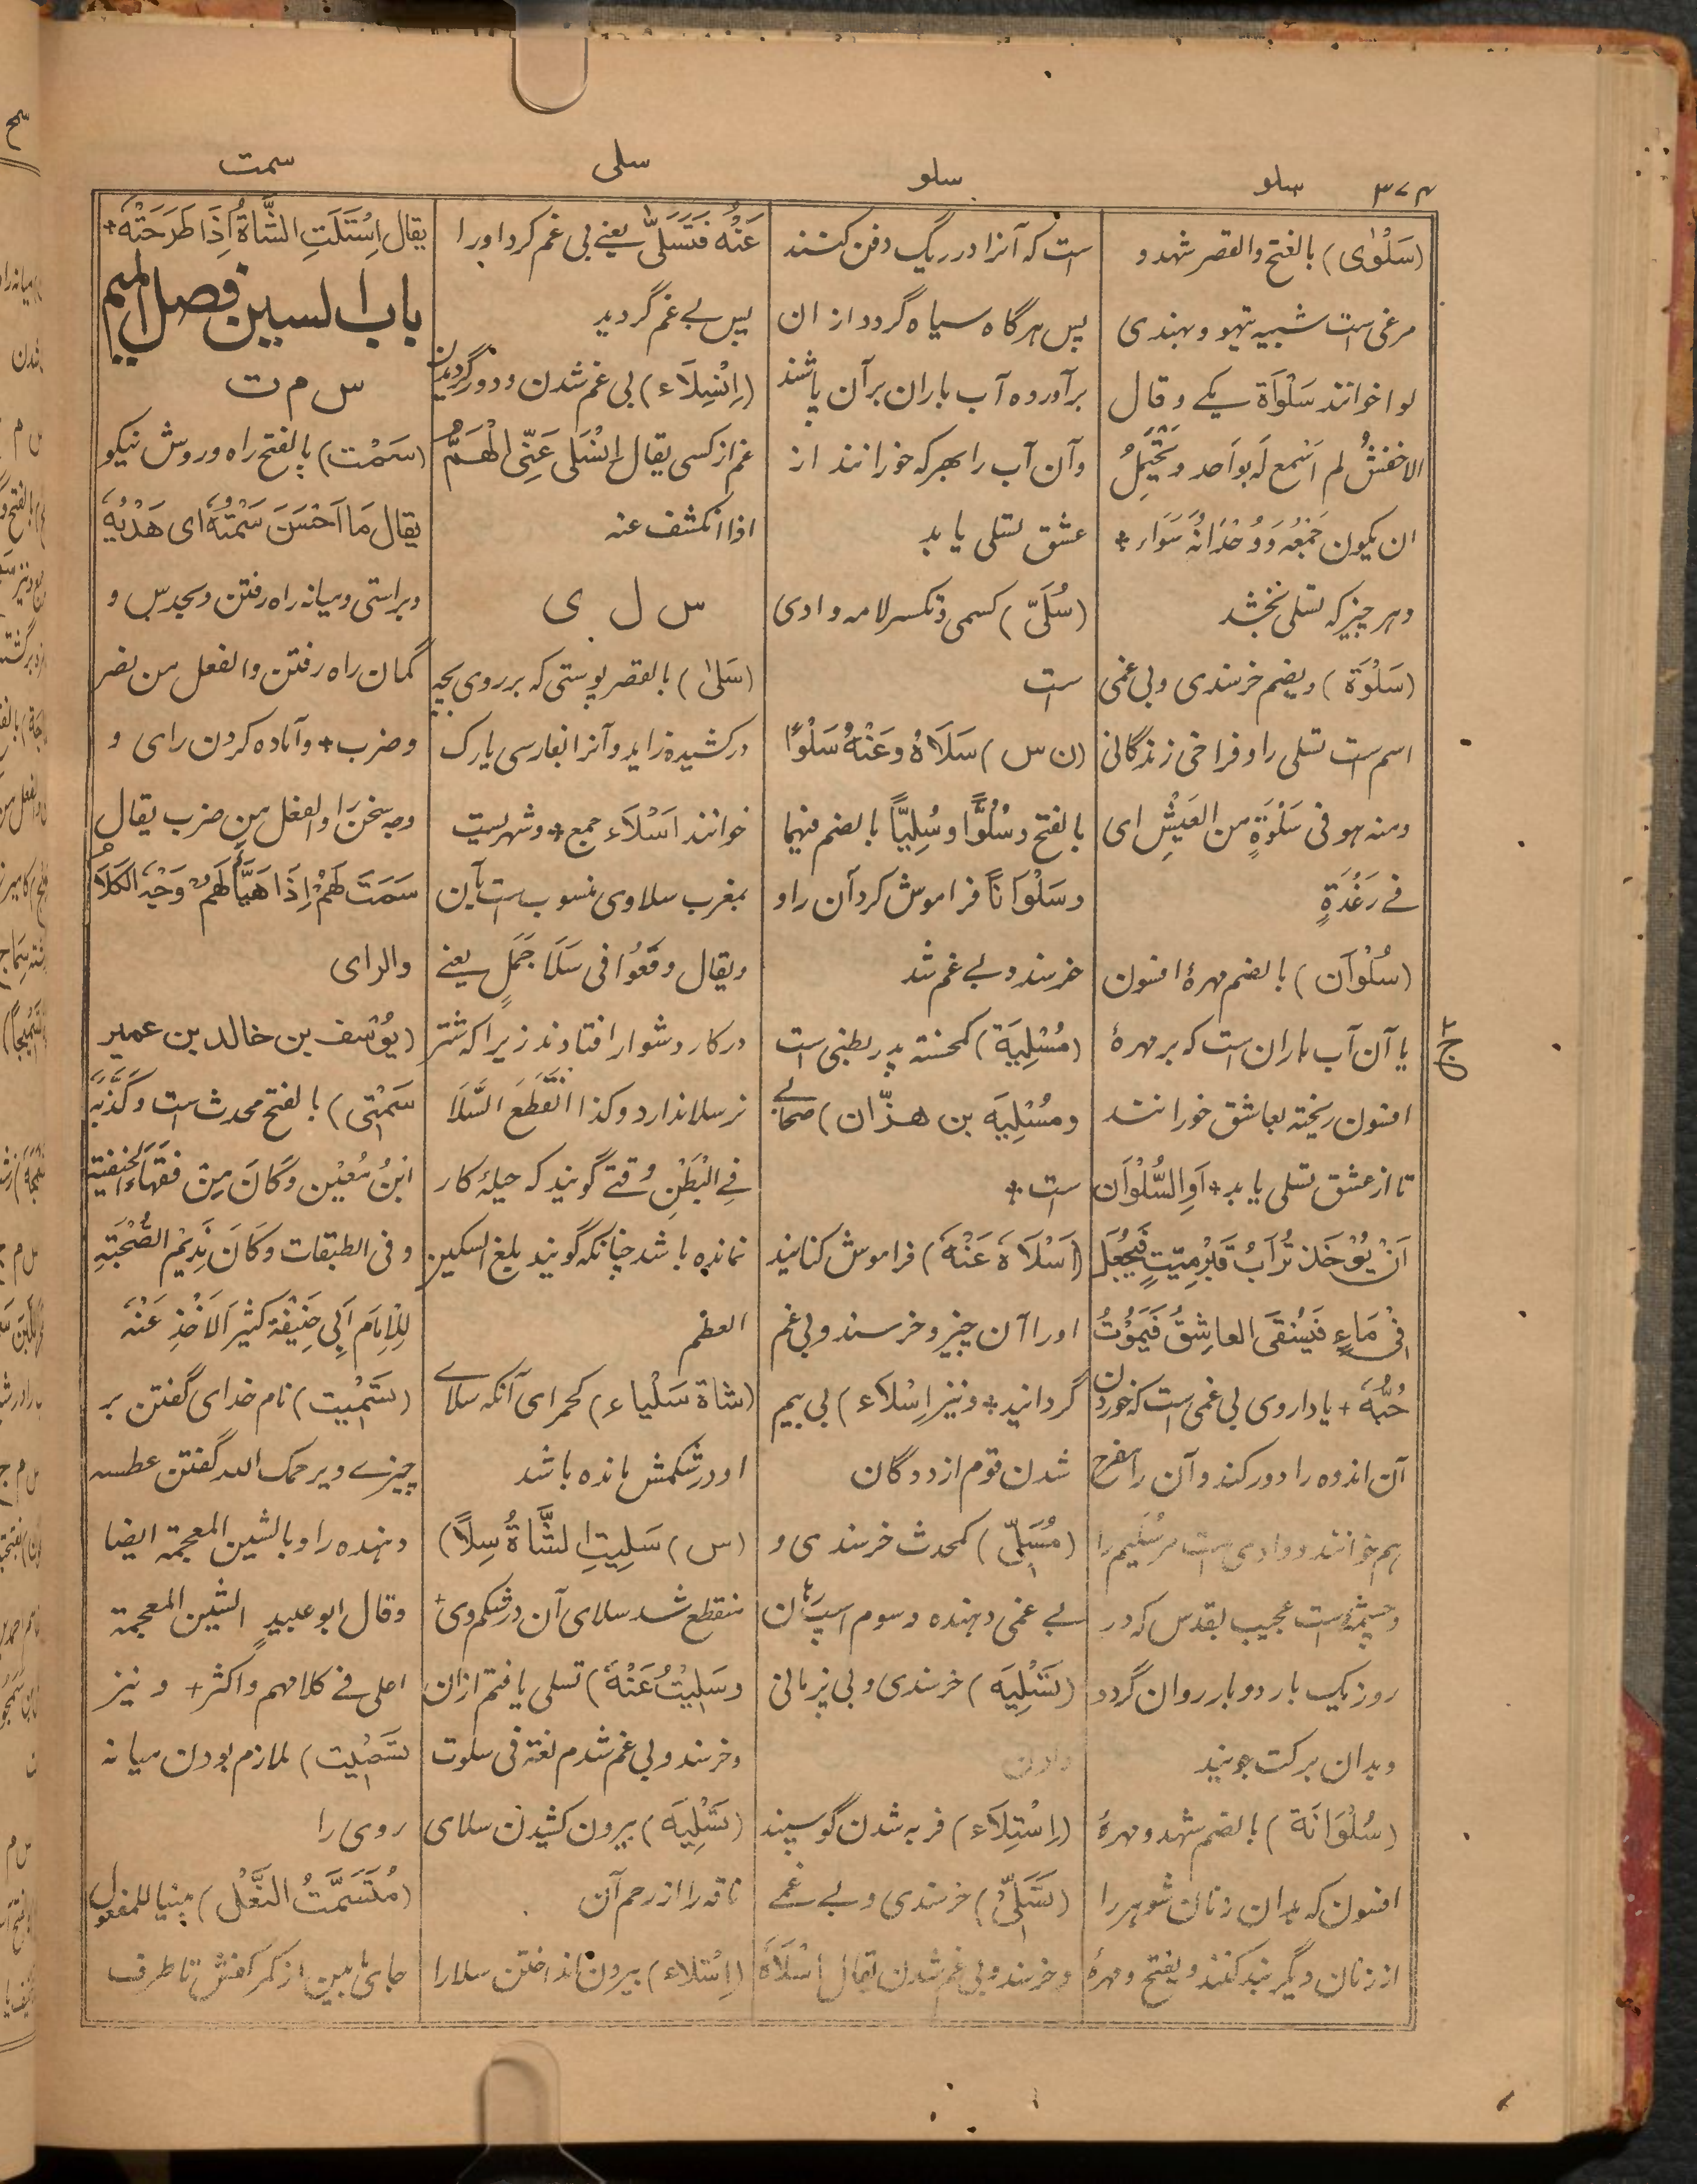 ۳۷۴
سلو
سلو
سلی
سمت
(سَلْوٰی) بالفتح والقصر شهد و
مرغی است شبیه تیهو و بهندی
لوا خوانند سَلْوَاة یکے و قال
الاخفش لم اسمع له بواحد و یحتمل
ان یکون جَمْعُه وَ وُحْدَانُه سَوَاء +
و هر چیز که تسلی بخشد
(سَلْوَة) ویضم خرسندی و بی غمی
اسم است تسلی را و فراخی زندگانی
ومنه هو فی سَلْوَةٍ من العَیْشِ ای
فے رَغْدَةٍ
(سُلْوَان) بالضم مهرۀ افسون
یا آن آب باران است که بر مهرۀ
افسون ریخته بعاشق خورانند
تا از عشق تسلی یابد + اَوِ السُّلْوَان
اَنْ یُوْخَذ تُرَابُ قَبْرِ مَیّتٍ فَیُجْعَلَ
فِیْ مَاءٍ فَیُسْقَی العاشِقُ فَیَمُوْتُ
حُبُّهٗ + یا داروی بی غمی است که خوردن
آن اندوه را دور کند و آن را مفرح
هم خوانند و وادی است مر سُلَیم را
و چشمۀ است عجیب بقدس که در
روز یک بار دو بار روان گردد
و بدان برکت جویند
(سُلْوَانَة) بالضم شهد و مهرۀ
افسون که بدان زنان شوهر را
از زنان دیگر بند کنند و یفتح و مهرۀ
است که آنرا در ریگ دفن کنند
پس هرگاه سیاه گردد از ان
برآورده آب باران بر آن پاشند
و آن آب را بهر که خورانند از
عشق تسلی یابد
(سُلَیّ) کسمی و تکسر لامه وادی
ست
(ن س) سَلَاهُ وعَنْهُ سَلْوًا
بالفتح و سُلُوًّا و سُلِیًّا بالضم فیهما
و سَلْوَانًا فراموش کرد آن را و
خرسند و بے غم شد
(مُسْلِیَة) کمحسنة پدر بطنی است
و مُسْلِیَه بن هزّان) صحابے
ست +
(اَسْلَاهُ عَنْهُ) فراموش کنانید
او را آن چیز و خرسند و بی غم
گردانید + و نیز اِسْلَاء) بی بیم
شدن قوم از ددگان
(مُسَلِّیّ) کمحدث خرسندی و
بے غمی دهنده و سوم اسپ تان
(تَسْلِیَه) خرسندی و بی پزمانی
دادن
(اِسْتِلَاء) فربه شدن گوسپند
(تَسَلّیّ) خرسندی و بے غمے
و خرسند و بی غم شدن یقال اَسْلَاهُ
عَنْهُ فَتَسَلّٰی یعنے بی غم کرد او را
پس بے غم گردید
(اِنْسِلَاء) بی غم شدن و دور گردیدن
غم از کسی یقال انْسَلی عَنِّی الْهَمُّ
اذا انکشف عنه
س ل ی
(سَلیٰ) بالقصر پوستی که بر روی بچه
درکشیده زاید و آنرا بفارسی یارک
خوانند اَسْلَاء جمع + و شهریست
بمغرب سلاوی منسوب است بآن
ویقال وقَعُوا فی سَلَا جَمَلٍ یعنے
در کار دشوار افتادند زیرا که شتر
نر سلا ندارد و کذا انْقَطَعَ السَّلَا
فِی الْبَطْنِ وقتے گویند که حیلۂ کار
نمانده باشد چنانکه گویند بلغ السکین
العظم
(شاة سَلْیاء) کحمرای آنکه سلاے
او در شکمش مانده باشد
(س) سَلِیَتِ الشَّاةُ سِلًا)
منقطع شد سلای آن در شکم وی +
و سَلِیْتُ عَنْهُ) تسلی یافتم از ان
و خرسند و بی غم شدم لغة فی سلوت
(تَسْلِیَه) بیرون کشیدن سلای
ناقه را از رحم آن
(اِسْتلاء) بیرون انداختن سلا را
یقال اِسْتَلَتِ الشَّاةُ اِذَا طَرَحَتْهُ +
باب السین فصل المیم
س م ت
(سَمْت) بالفتح راه و روش نیکو
یقال مَا اَحْسَنَ سَمْتَهٗ ای هَدْیَهٗ
و براستی و میانه راه رفتن و بحدس و
گمان راه رفتن والفعل من نصر
و ضرب + و آماده کردن رای و
وجه سخن را والفعل من ضرب یقال
سَمَتَ لَهُمْ اِذَا هَیَّأَ لَهُمْ وَجْهَ الْکَلَامِ
والرای
(یوْسُف بن خالد بن عمیر
سَمْتِی) بالفتح محدث است و کَذَّبَهُ
ابْنُ مُعِیْن وَکَانَ مِنْ فُقَهَاءِ الحَنَفِیَّة
وفی الطبقات وَکَانَ قَدِیْمَ الصُّحْبَةِ
لِلْاِمَامِ اَبِی حَنِیْفَة کَثِیْرَ الاَخْذِ عَنْهُ
(تَسْمِیْت) نام خدای گفتن بر
چیزے و یرحمک الله گفتن عطسه
دهنده را و بالشین المعجمة ایضا
وقال ابو عبیدٍ الشین المعجمة
اعلی فے کلامهم واکثر + و نیز
تَسْمِیْت) ملازم بودن میانه
روی را
(مُتَسَمَّتُ النَّعْل) مبنیا للمفعول
جای بین از کمر کفش تا طرف